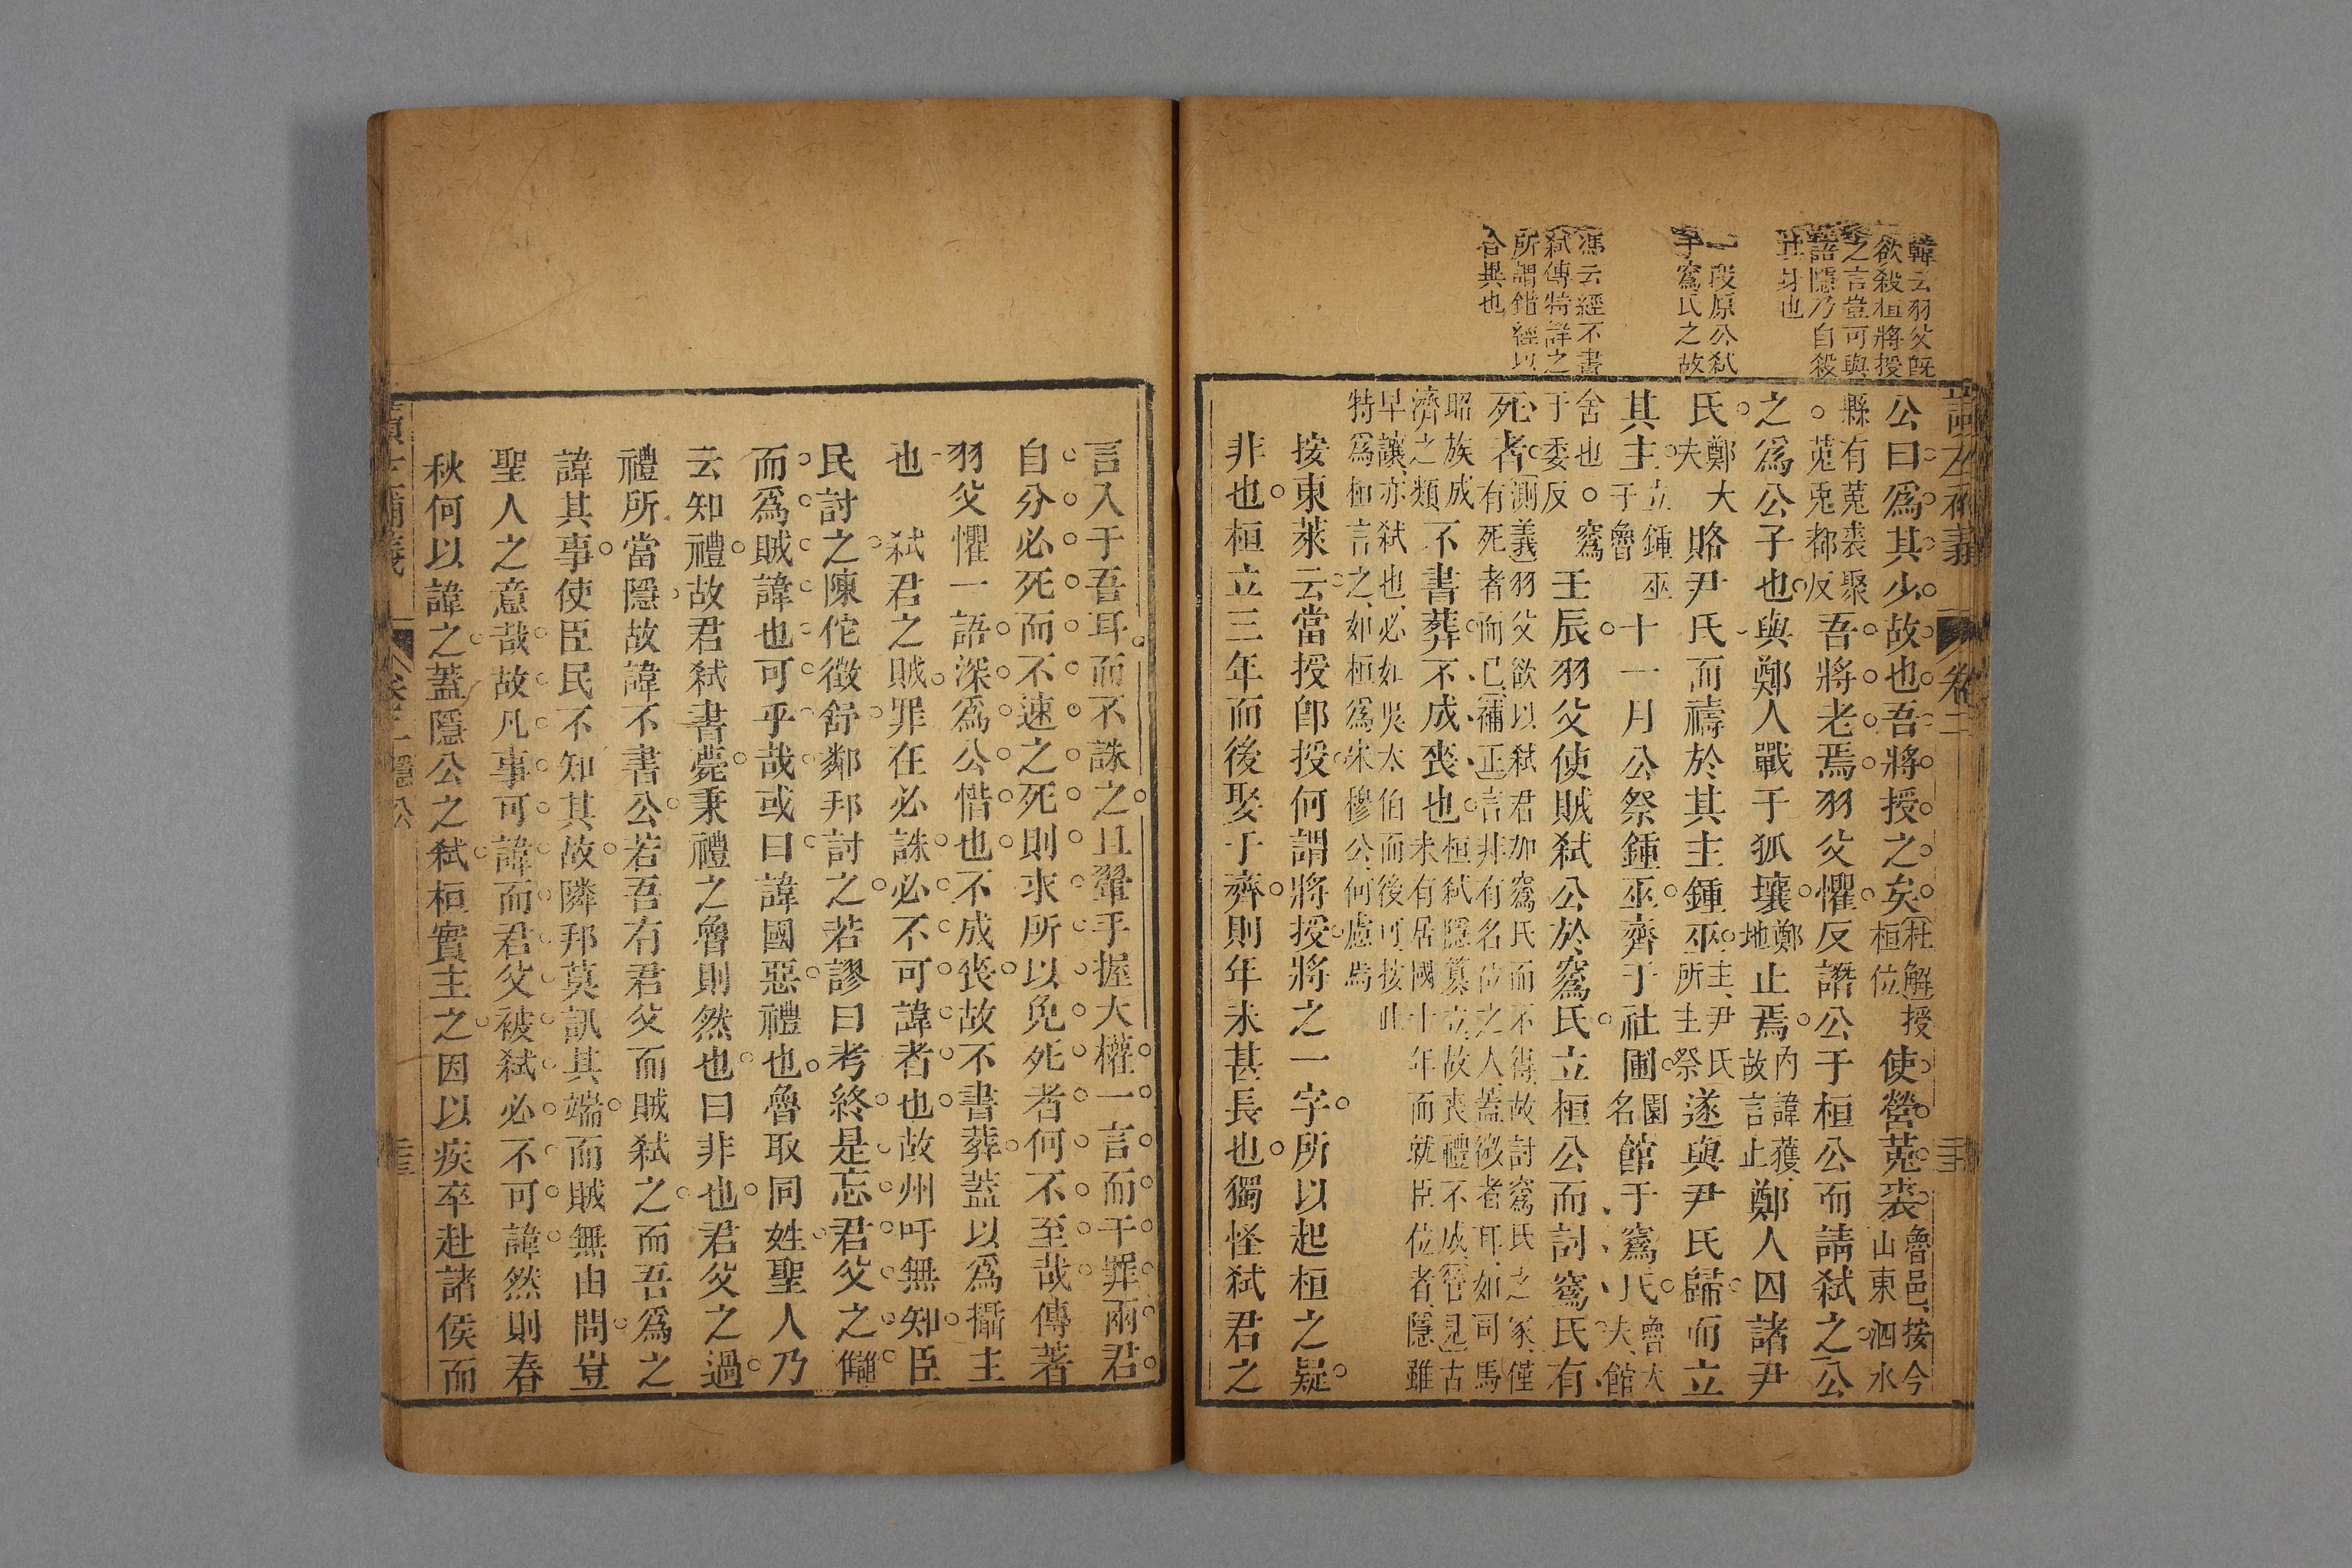 韓云羽父既
欲殺桓將授
之言豈可與
語隱乃自殺
其身也
一段原公弑
于寪氏之故
馮云經不書
弑傳特詳之
所謂錯經以
合異也
卷二
公曰爲其少故也吾將授之矣杜解授桓位使營菟裘魯邑按今山東泗水
縣有菟裘聚。菟兎都反吾將老焉羽父懼反譖公于桓公而請弑之公
之爲公子也與鄭人戰于狐壤鄭地止焉内諱獲故言止鄭人囚諸尹
氏鄭大夫賂尹氏而禱於其主鍾巫主尹氏所主祭遂與尹氏歸而立
其主立鍾巫于魯十一月公祭鍾巫齊于社圃園名館于寪氏魯大夫館
舍也。寪于委反壬辰羽父使賊弑公於寪氏立桓公而討寪氏有
死者測義羽父欲以弑君加寪氏而不得故討寪氏之家僅有死者而已補正言非有名位之人蓋微者耳如司馬
昭族成濟之類不書葬不成喪也桓弑隱篡立故喪禮不成管見古未有居國十年而就臣位者隱雖
早讓亦弑也必如吳太伯而後可按此
特爲桓言之如桓爲宋穆公何慮焉
按東萊云當授卽授何謂將授將之一字所以起桓之疑
非也桓立三年而後娶于齊則年未甚長也獨怪弑君之
言入于吾耳而不誅之且翬手握大權一言而干罪兩君
自分必死而不速之死則求所以免死者何不至哉傳著
羽父懼一語深爲公惜也不成喪故不書葬蓋以爲攝主
也　弑君之賊罪在必誅必不可諱者也故州吁無知臣
民討之陳佗徵舒鄰邦討之若謬曰考終是忘君父之讎
而爲賊諱也可乎哉或曰諱國惡禮也魯取同姓聖人乃
云知禮故君弑書薨秉禮之魯則然也曰非也君父之過
禮所當隱故諱不書公若吾有君父而賊弑之而吾爲之
諱其事使臣民不知其故隣邦莫訊其端而賊無由問豈
聖人之意哉故凡事可諱而君父被弑必不可諱然則春
秋何以諱之蓋隱公之弑桓實主之因以疾卒赴諸侯而
卷二 隱公